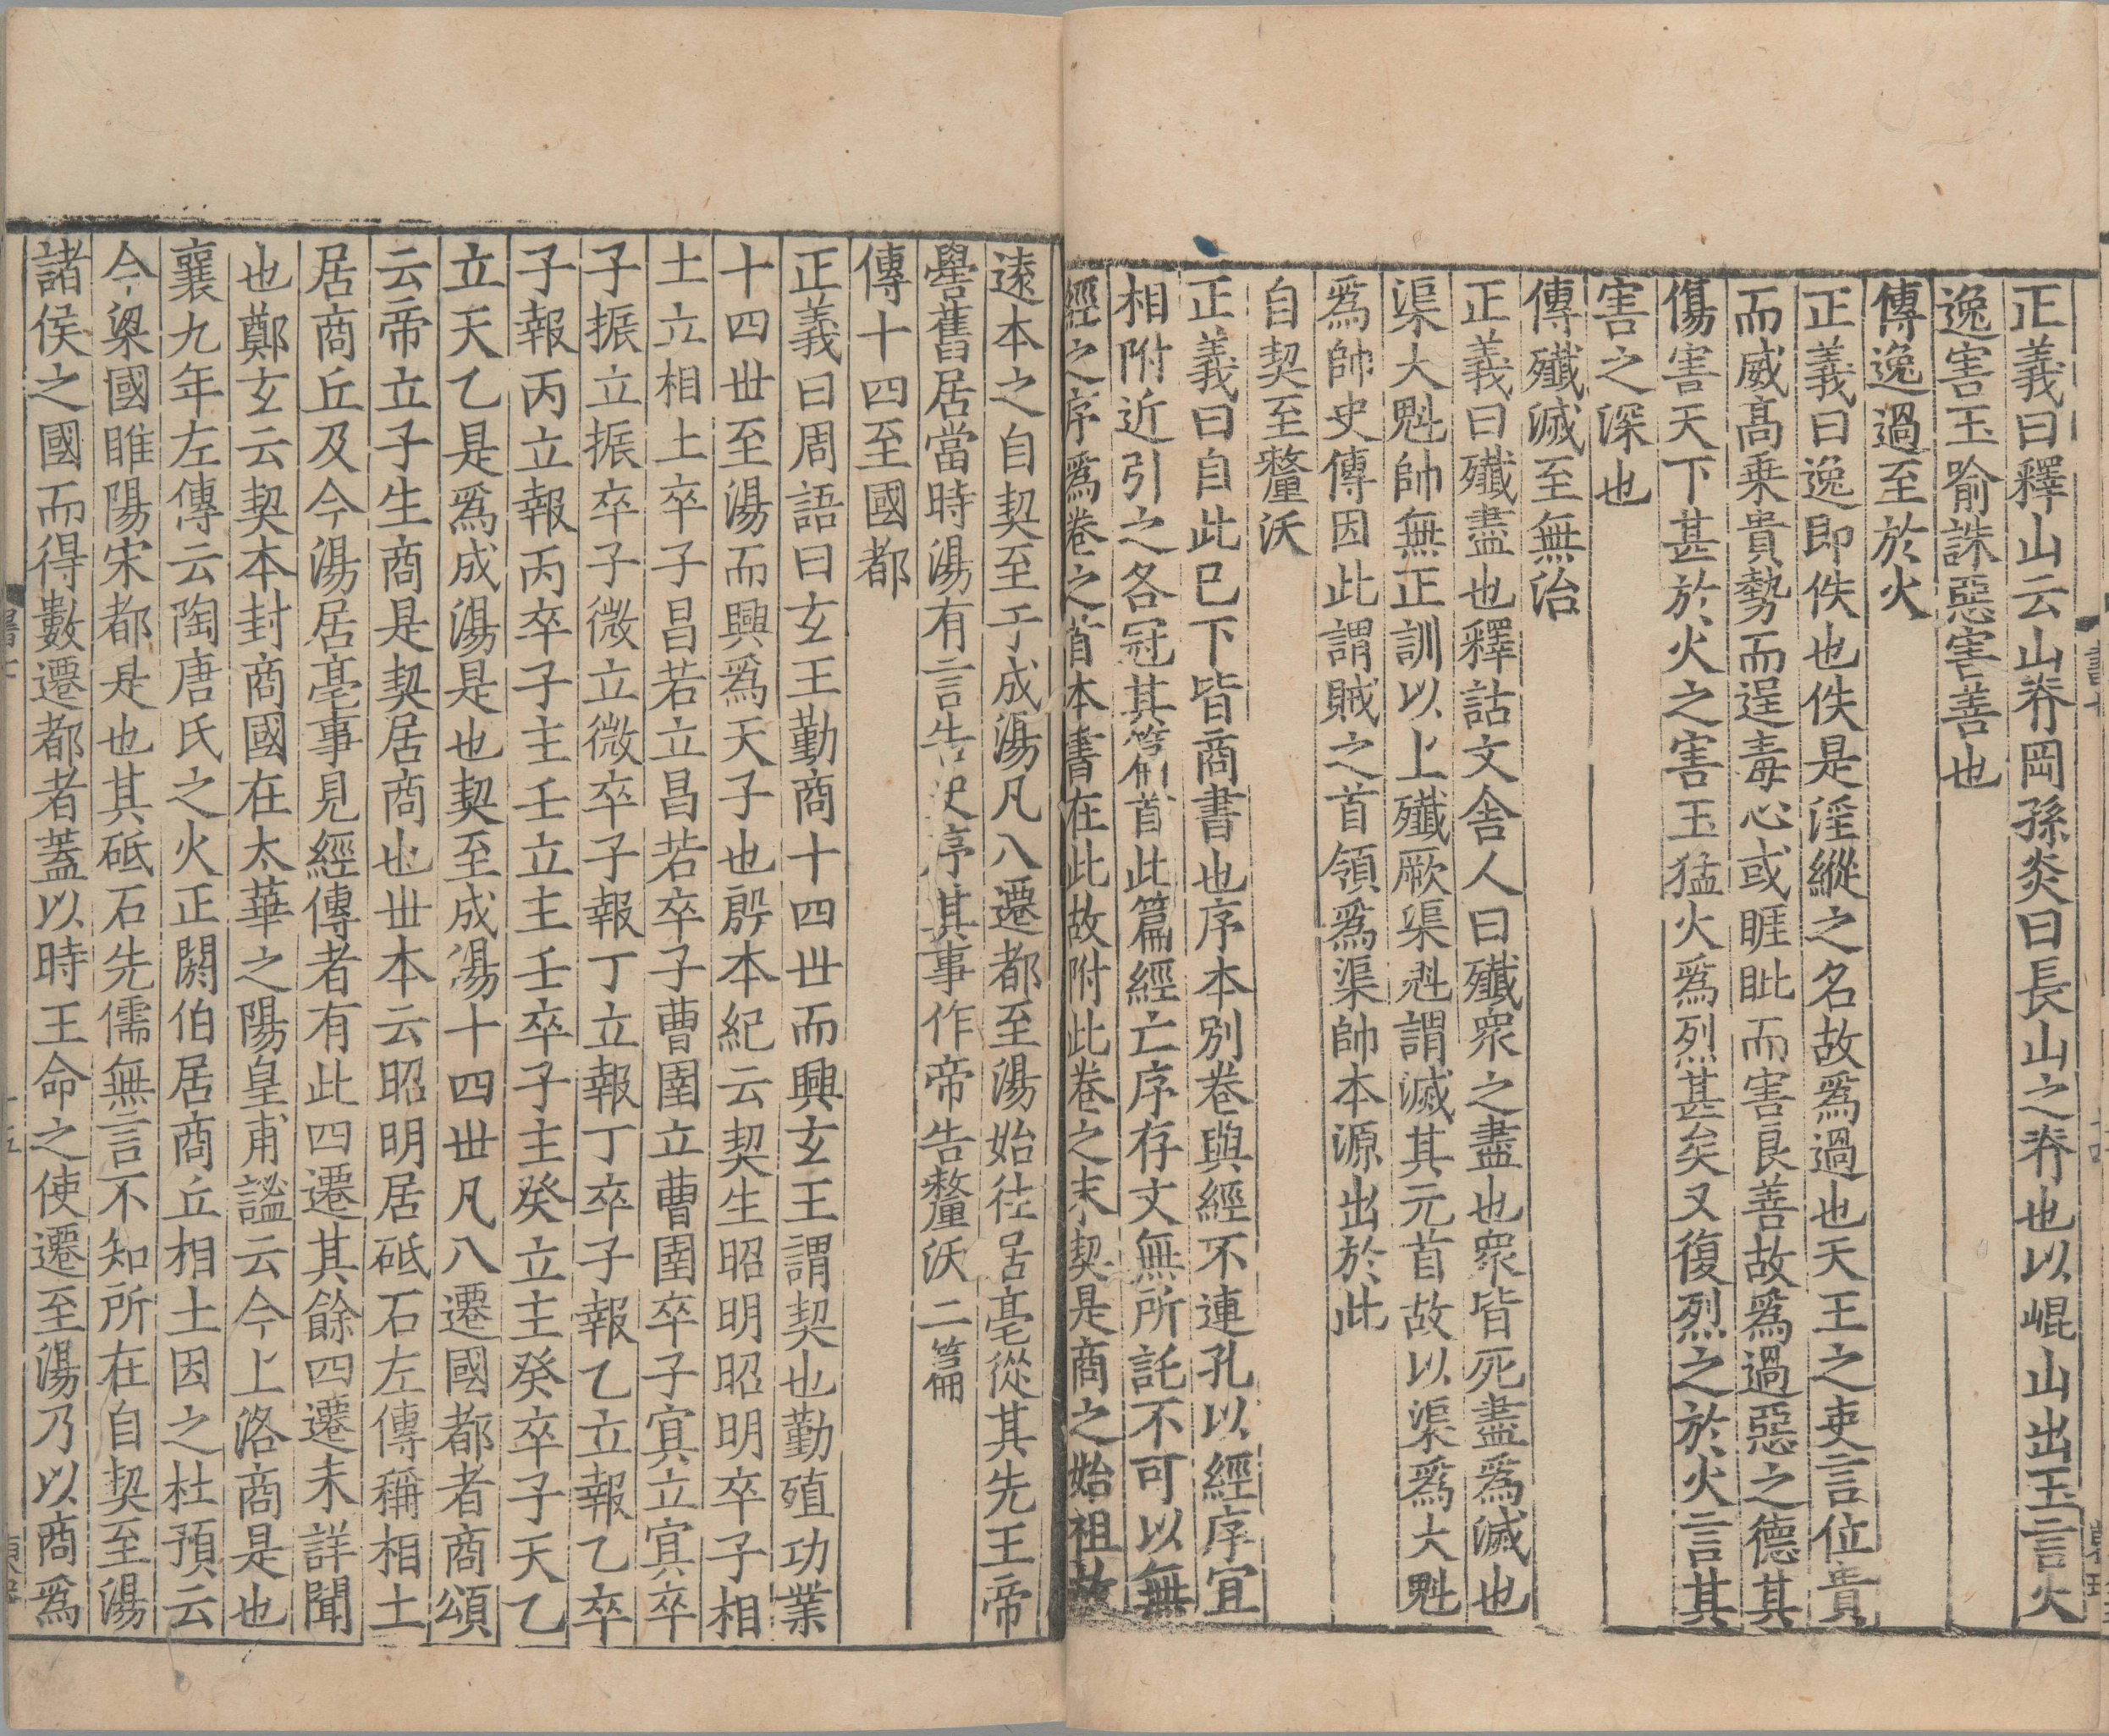 正義曰釋山云山脊岡孫炎曰長山之脊也以崐山出玉言火
逸害玉喻誅惡害善也
傳逸過至於火
正義曰逸即佚也佚是淫縱之名故爲過也天王之吏言位貴
而威髙乗貴勢而逞毒心或睚眦而害良善故爲過惡之德其
傷害天下甚於火之害玉猛火爲烈甚矣又復烈之於火言其
害之深也
傳殱滅至無治
正義曰殱盡也釋詁文舍人曰殱衆之盡也衆皆死盡爲滅也
渠大魁帥無正訓以上殱厥渠魁謂滅其元首故以渠爲大魁
爲帥史傳因此謂賊之首領爲渠帥本源出於此
自契至釐沃
正義曰自此已下皆商書也序本別卷與經不連孔以經序宜
相附近引之各冠其篇首此篇經亡序存文無所託不可以無
經之序爲卷之首本書在此故附此卷之末契是商之始祖故
逺本之自契至于成湯凡八遷都至湯始往居亳從其先王帝
嚳舊居當時湯有言告史序其事作帝告釐沃二篇
傳十四至國都
正義曰周語曰玄王勤商十四丗而興玄王謂契也勤殖功業
十四丗至湯而興爲天子也殷本紀云契生昭明昭明卒子相
土立相土卒子昌若立昌若卒子曹圉立曹圉卒子冥立冥卒
子振立振卒子微立微卒子報丁立報丁卒子報乙立報乙卒
子報丙立報丙卒子主壬立主壬卒子主癸立主癸卒子天乙
立天乙是爲成湯是也契至成湯十四丗凡八遷國都者商頌
云帝立子生商是契居商也丗本云昭明居砥石左傳稱相土
居商丘及今湯居亳事見經傳者有此四遷其餘四遷未詳聞
也鄭玄云契本封商國在太華之陽皇甫謐云今上洛商是也
襄九年左傳云陶唐氏之火正閼伯居商丘相土因之杜預云
今梁國睢陽宋都是也其砥石先儒無言不知所在自契至湯
諸侯之國而得數遷都者蓋以時王命之使遷至湯乃以商爲